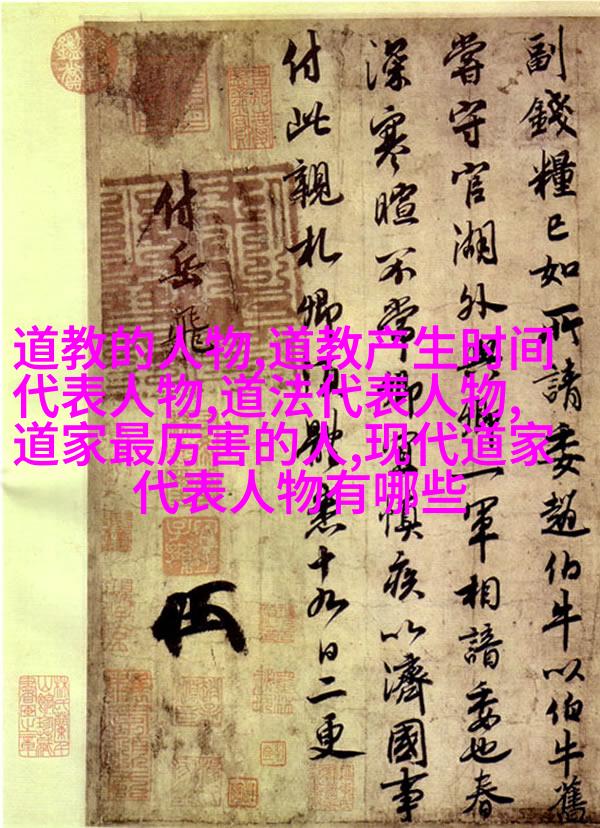 道教的人物,道教产生时间
代表人物,道法代表人物,
道家最厉害的人,现代道家
代表人物有哪些
副錢糧已如所請委趙伯牛以伯牛舊
嘗守官湖外與卿一軍相諳委也春
深寒暄不常卿宜慎疾以濟國事
付此親札卿須體悉十九日二更
付岳飛